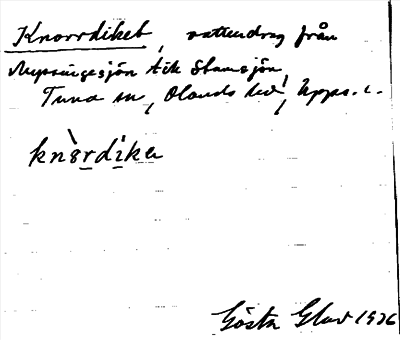 Knorrdiket, vattendrag från
sjön till Stamsjön,
Tuna sn, Olands hd, Upps. l.
knørdika
Gösta Glav 1926